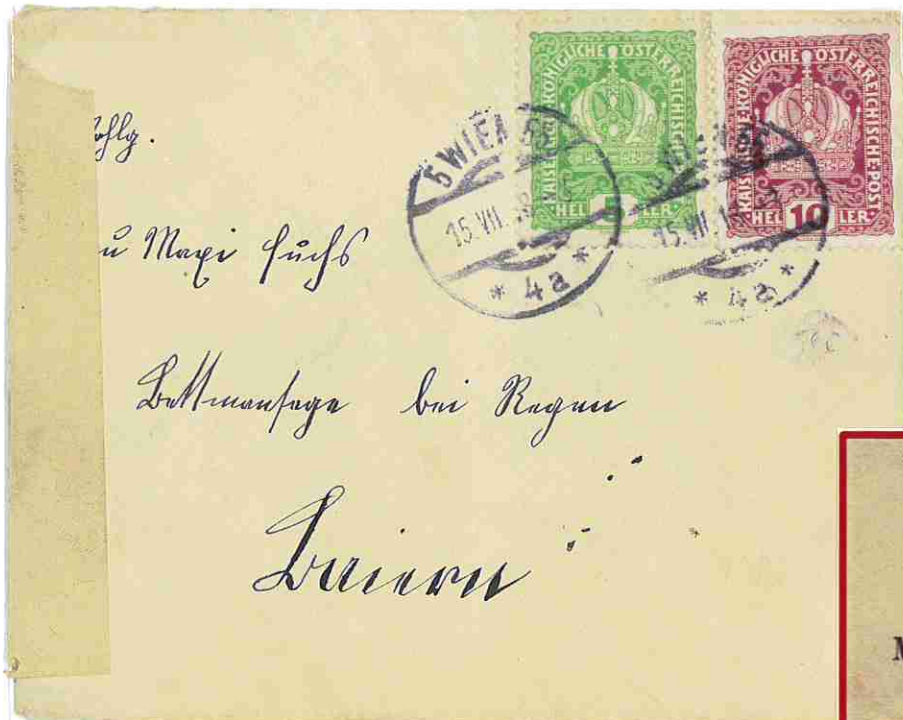 KAISERLICHE·KÖNIGLICHE·ÖSTERREICHISCHE·POST
HELLER
KAISERLICHE·KÖNIGLICHE·ÖSTERREICHISCHE·POST·
HEL 10 LER
5 WIEN
15.VII.
* 4a *
WIEN
15.VII.
* 4a *
Maxi Fuchs
Bettmansäge bei Regen
Baiern